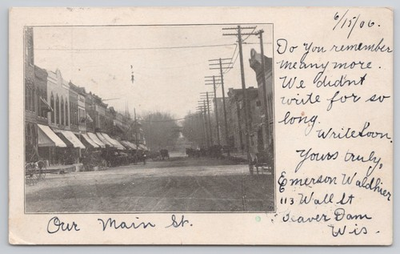 6/15/06.
Do you remember
me any more.
We didn't
write for so
long.
Write soon.
Yours truly,
Emerson Waldhier
113 Wall St
Beaver Dam
Wis.
Our Main St.